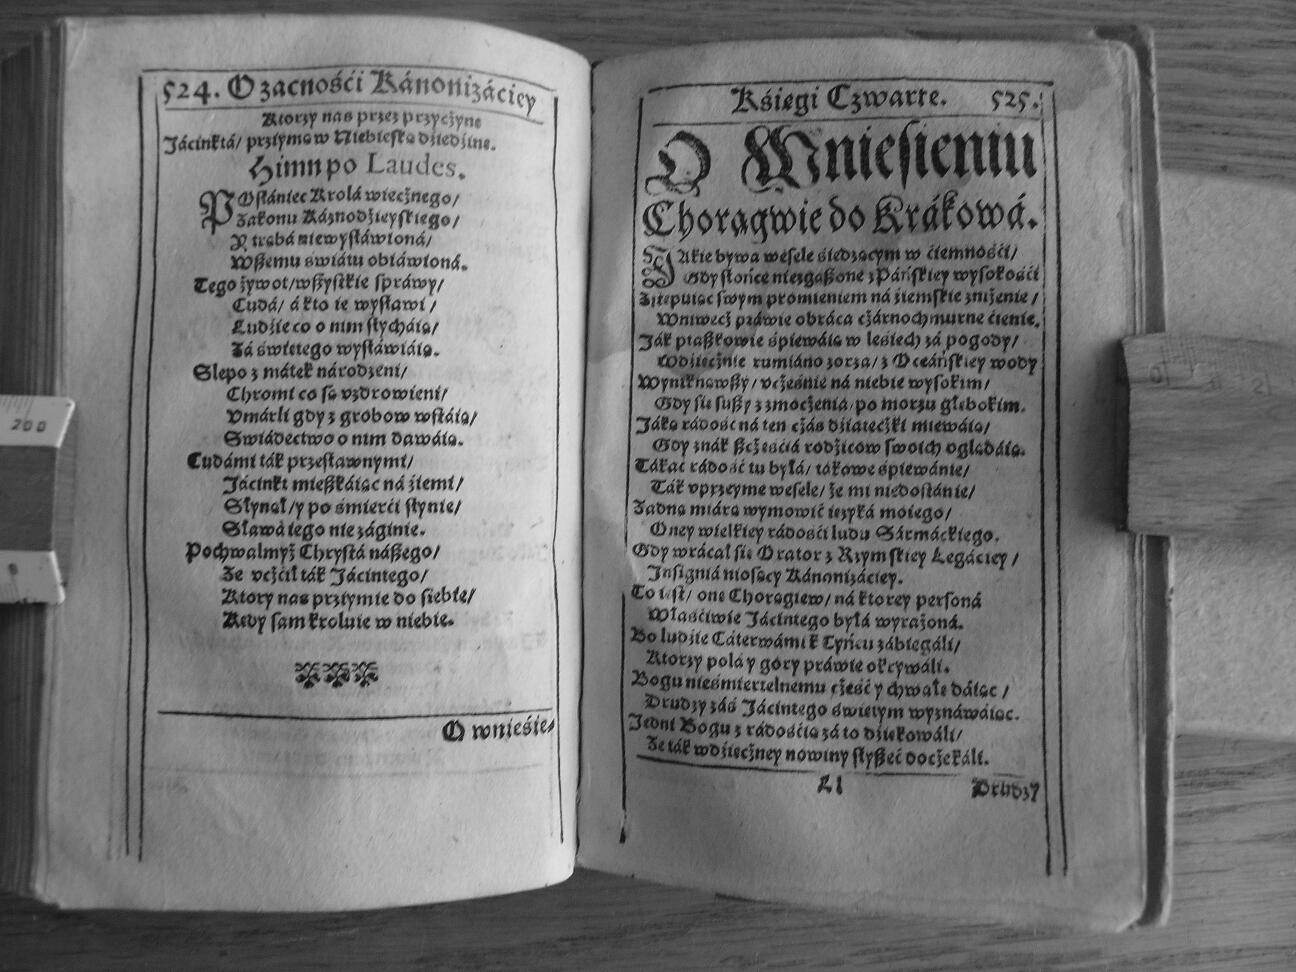 524. O zacnośći Kánonizáciey
Ktorzy nas przez przyczynę
Jácinktá/ prziymą w Niebieską dziedzinę.
Himn po Laudes.
POsłániec Krolá wiecżnego/
Zakonu Káznodźieyskiego/
Y trąbá niewysłáwioná/
Wßemu świátu obiáwioná.
Tego żywot/ wßystkie spráwy/
Cudá/ á kto ie wysłáwi/
Ludźie co o nim słycháią/
Zá świętego wysłáwiáią.
Slepo z mátek národzeni/
Chromi co są vzdrowieni/
Vmárli gdy z grobow wstáią/
Swiádectwo o nim dawáią.
Cudámi ták przesławnymi/
Jácinkt mießkáiąc ná źiemi/
Słynął/ y po śmierći słynie/
Sławá iego nie záginie.
Pochwalmyż Chrystá náßego/
Ze vcżćił ták Jácintego/
Ktory nas prziymie do siebie/
Kędy sam kroluie w niebie.
O wnieśie-
Kśięgi Czwarte. 525.
O Wniesieniu
Chorągwie do Krákowá.
JAkie bywa wesele śiedzącym w ćiemnośći/
Gdy słońce niezgáßone z Páńskiey wysokośći
Zstępuiąc swym promieniem ná źiemskie zniżenie/
Wniwecż práwie obráca cżárnochmurne ćienie.
Ják ptaßkowie śpiewáią w leśiech zá pogody/
Wdźięcżnie rumiáno zorza/ z Oceáńskiey wody
Wyniknąwßy/ vcześnie ná niebie wysokim/
Gdy się sußy z zmocżenia po morzu głębokim.
Jáką rádość ná ten cżás dźiatecżki miewáią/
Gdy znák ßcżęśćia rodźicow swoich oglądáią.
Tákać rádość tu byłá/ tákowe śpiewánie/
Ták vprzeyme wesele/ że mi niedostánie/
Zadną miárą wymowić ięzyká moiego/
Oney wielkiey rádośći ludu Sármáckiego.
Gdy wrácał się Orator z Rzymskiey Legáciey/
Insigniá niosący Kánonizáciey.
To iest/ onę Chorągiew/ ná ktorey personá
Własćiwie Jácintego byłá wyrażoná.
Bo ludźie Cáterwámi k Tyńcu zábiegáli/
Ktorzy polá y gory práwie okrywáli.
Bogu nieśmiertelnemu cżeść y chwałę dáiąc/
Drudzy záś Jácintego świętym wyznáwáiąc.
Jedni Bogu z rádośćią zá to dźiękowáli/
Ze ták wdźięcżney nowiny słyßeć docżekáli.
Ll Drudzy